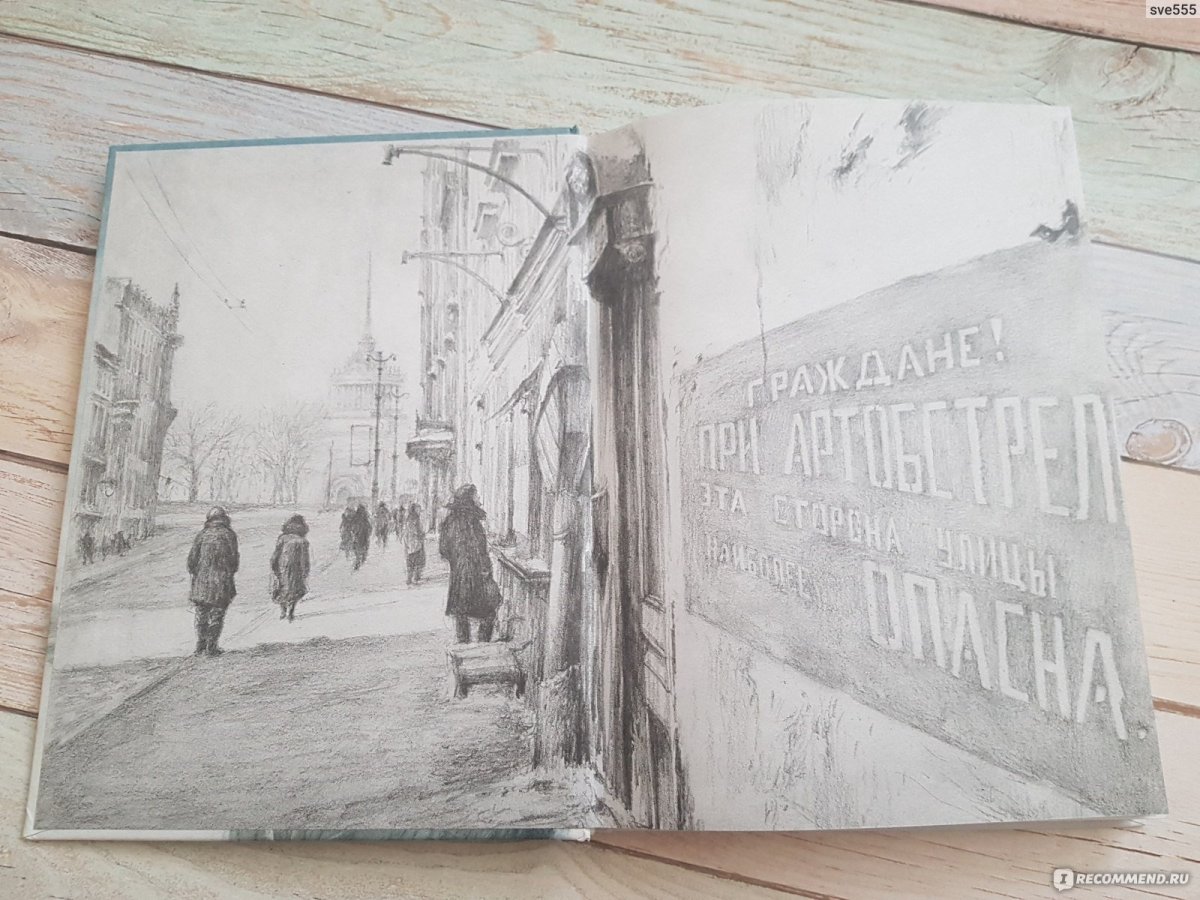 sve555
ГРАЖДАНЕ!
ПРИ АРТОБСТРЕЛ
ЭТА СТОРОНА УЛИЦЫ
НАИБОЛЕЕ ОПАСНА.
IRECOMMEND.RU